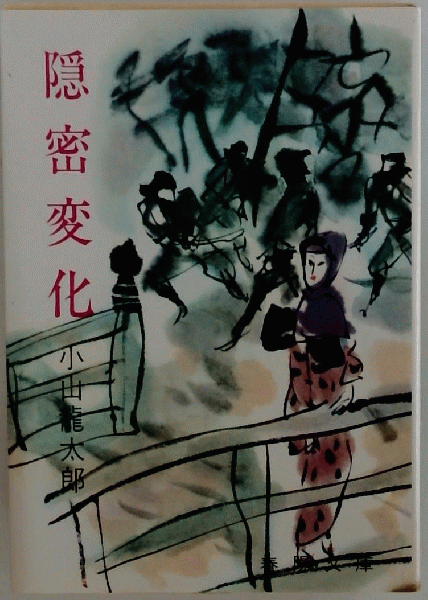 隠密変化
小山龍太郎
春陽文庫